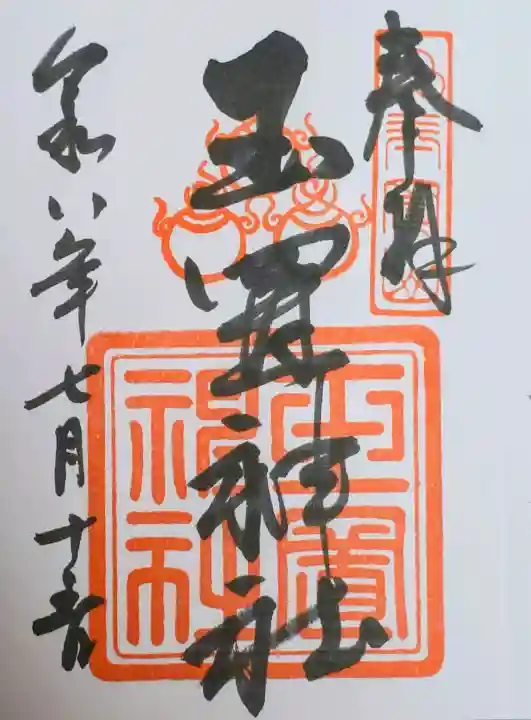 奉拝
玉置神社
玉置
神社
令和八年七月十五日